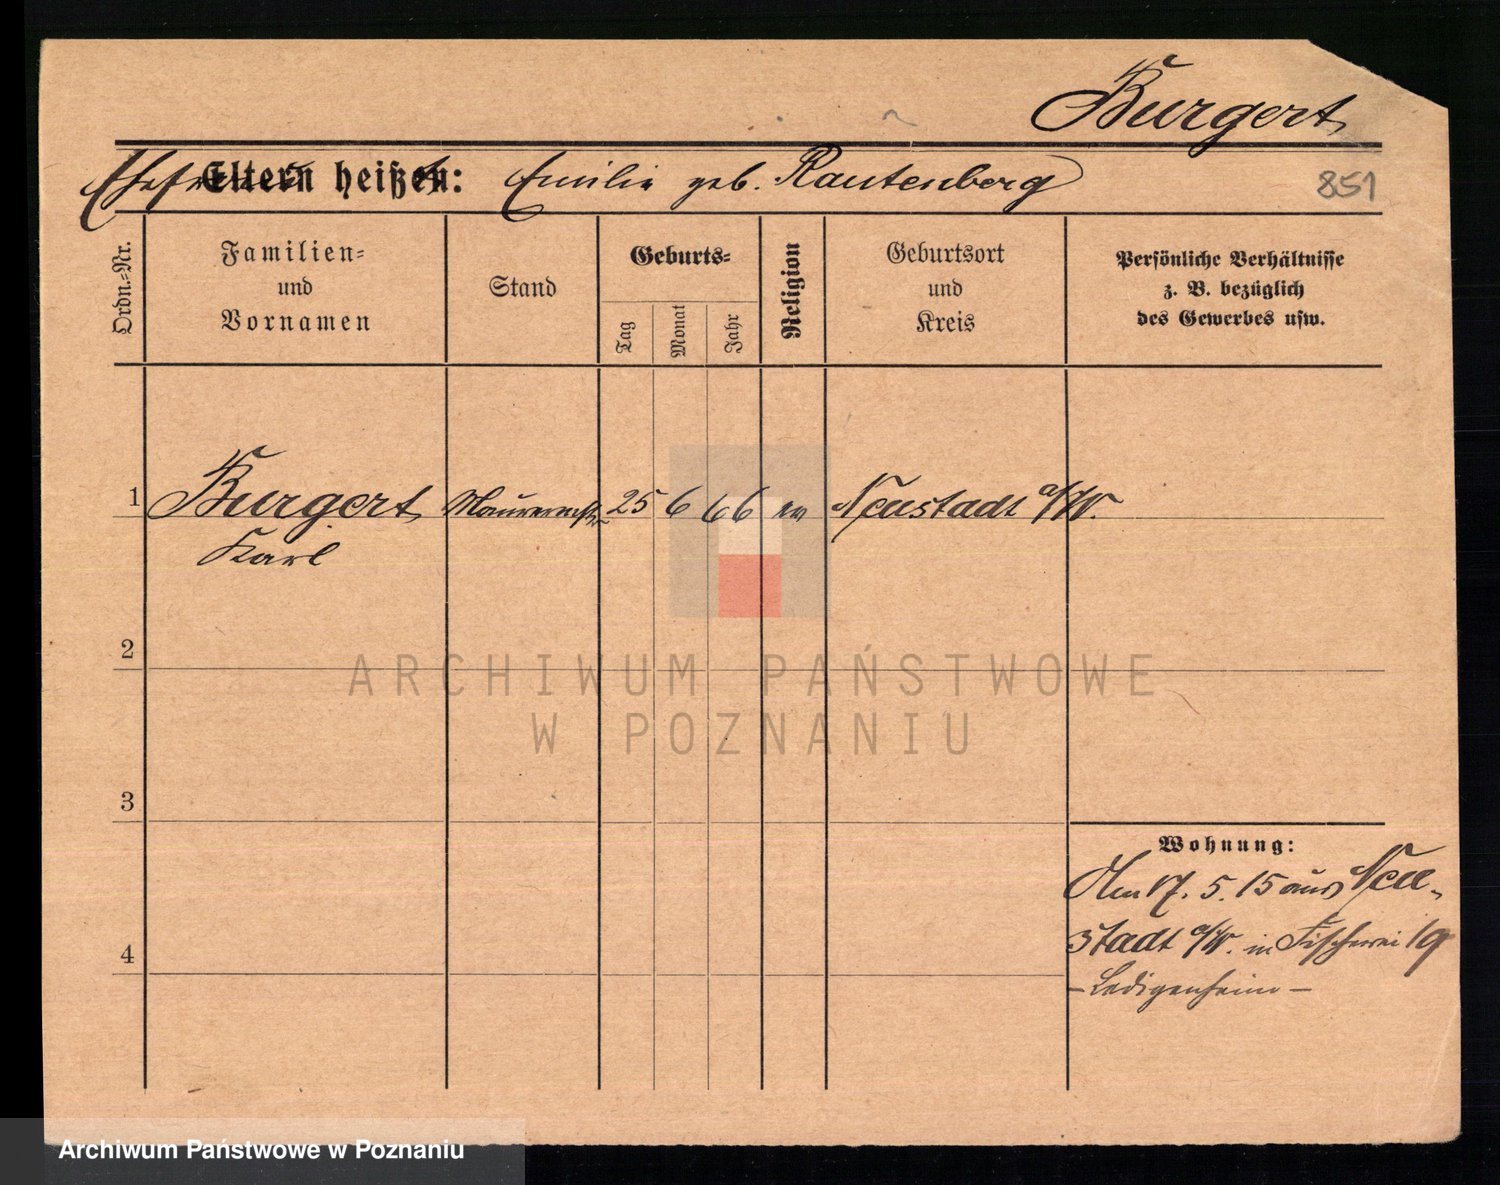 Burgert
Ehefrau
Eltern heißen: Emilie geb. Rautenberg
851
Ordn.-Nr.
Familien-
und
Vornamen
Stand
Geburts-
Tag
Monat
Jahr
Religion
Geburtsort
und
Kreis
Persönliche Verhältnisse
z. B. bezüglich
des Gewerbes usw.
1 Burgert Maurermstr 25 6 66 ev Neustadt a/W.
Karl
2
3
4
Wohnung:
Am 17. 5. 15 aus Neu-
stadt a/W. in Fischerei 19
- Ledigenheim -
ARCHIWUM PAŃSTWOWE
W POZNANIU
Archiwum Państwowe w Poznaniu